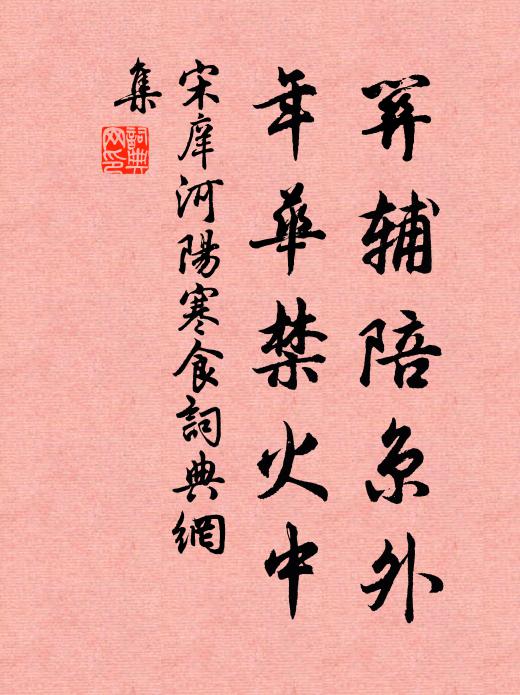 筭辅陪京外
年華禁火中
宋庠河陽寒食詞典網
集
詞典
网印